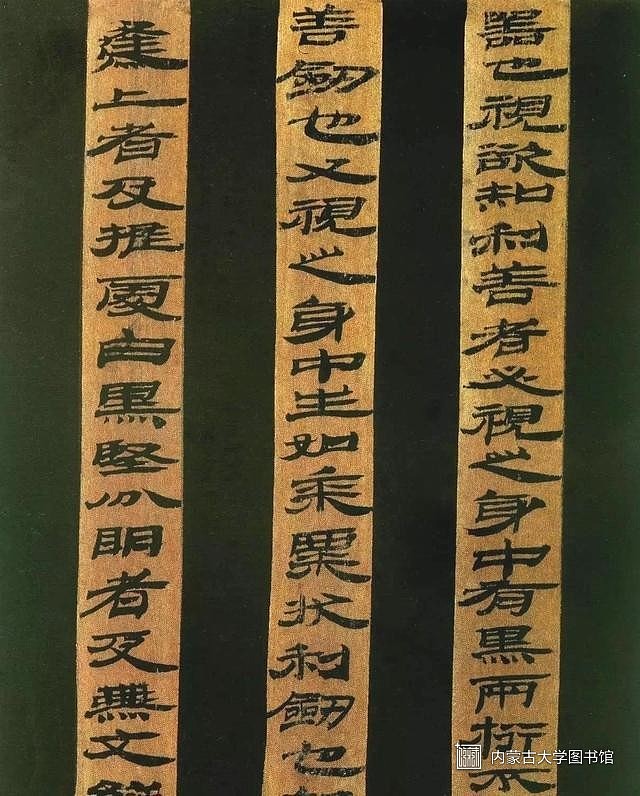 器也視欲知利善者必視之身中有黑兩桁不
善劍也又視之身中生如黍粟狀利劍也
上者及推處白黑堅分明者及無文
内蒙古大学图书馆